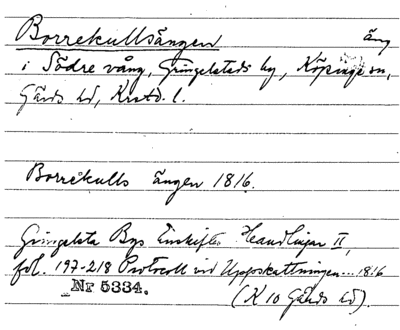 Borrekullsängen äng
i Södre vång, Gringelstads by, Köpinge sn,
Gärds hd, Krstd. l.
Borrekulls ängen 1816.
Gringelsta Bys Enskiftes Handlingar II,
fol. 197-218 Protocoll vid Uppskattningen... 1816
Nr 5334. (K 10 Gärds hd).